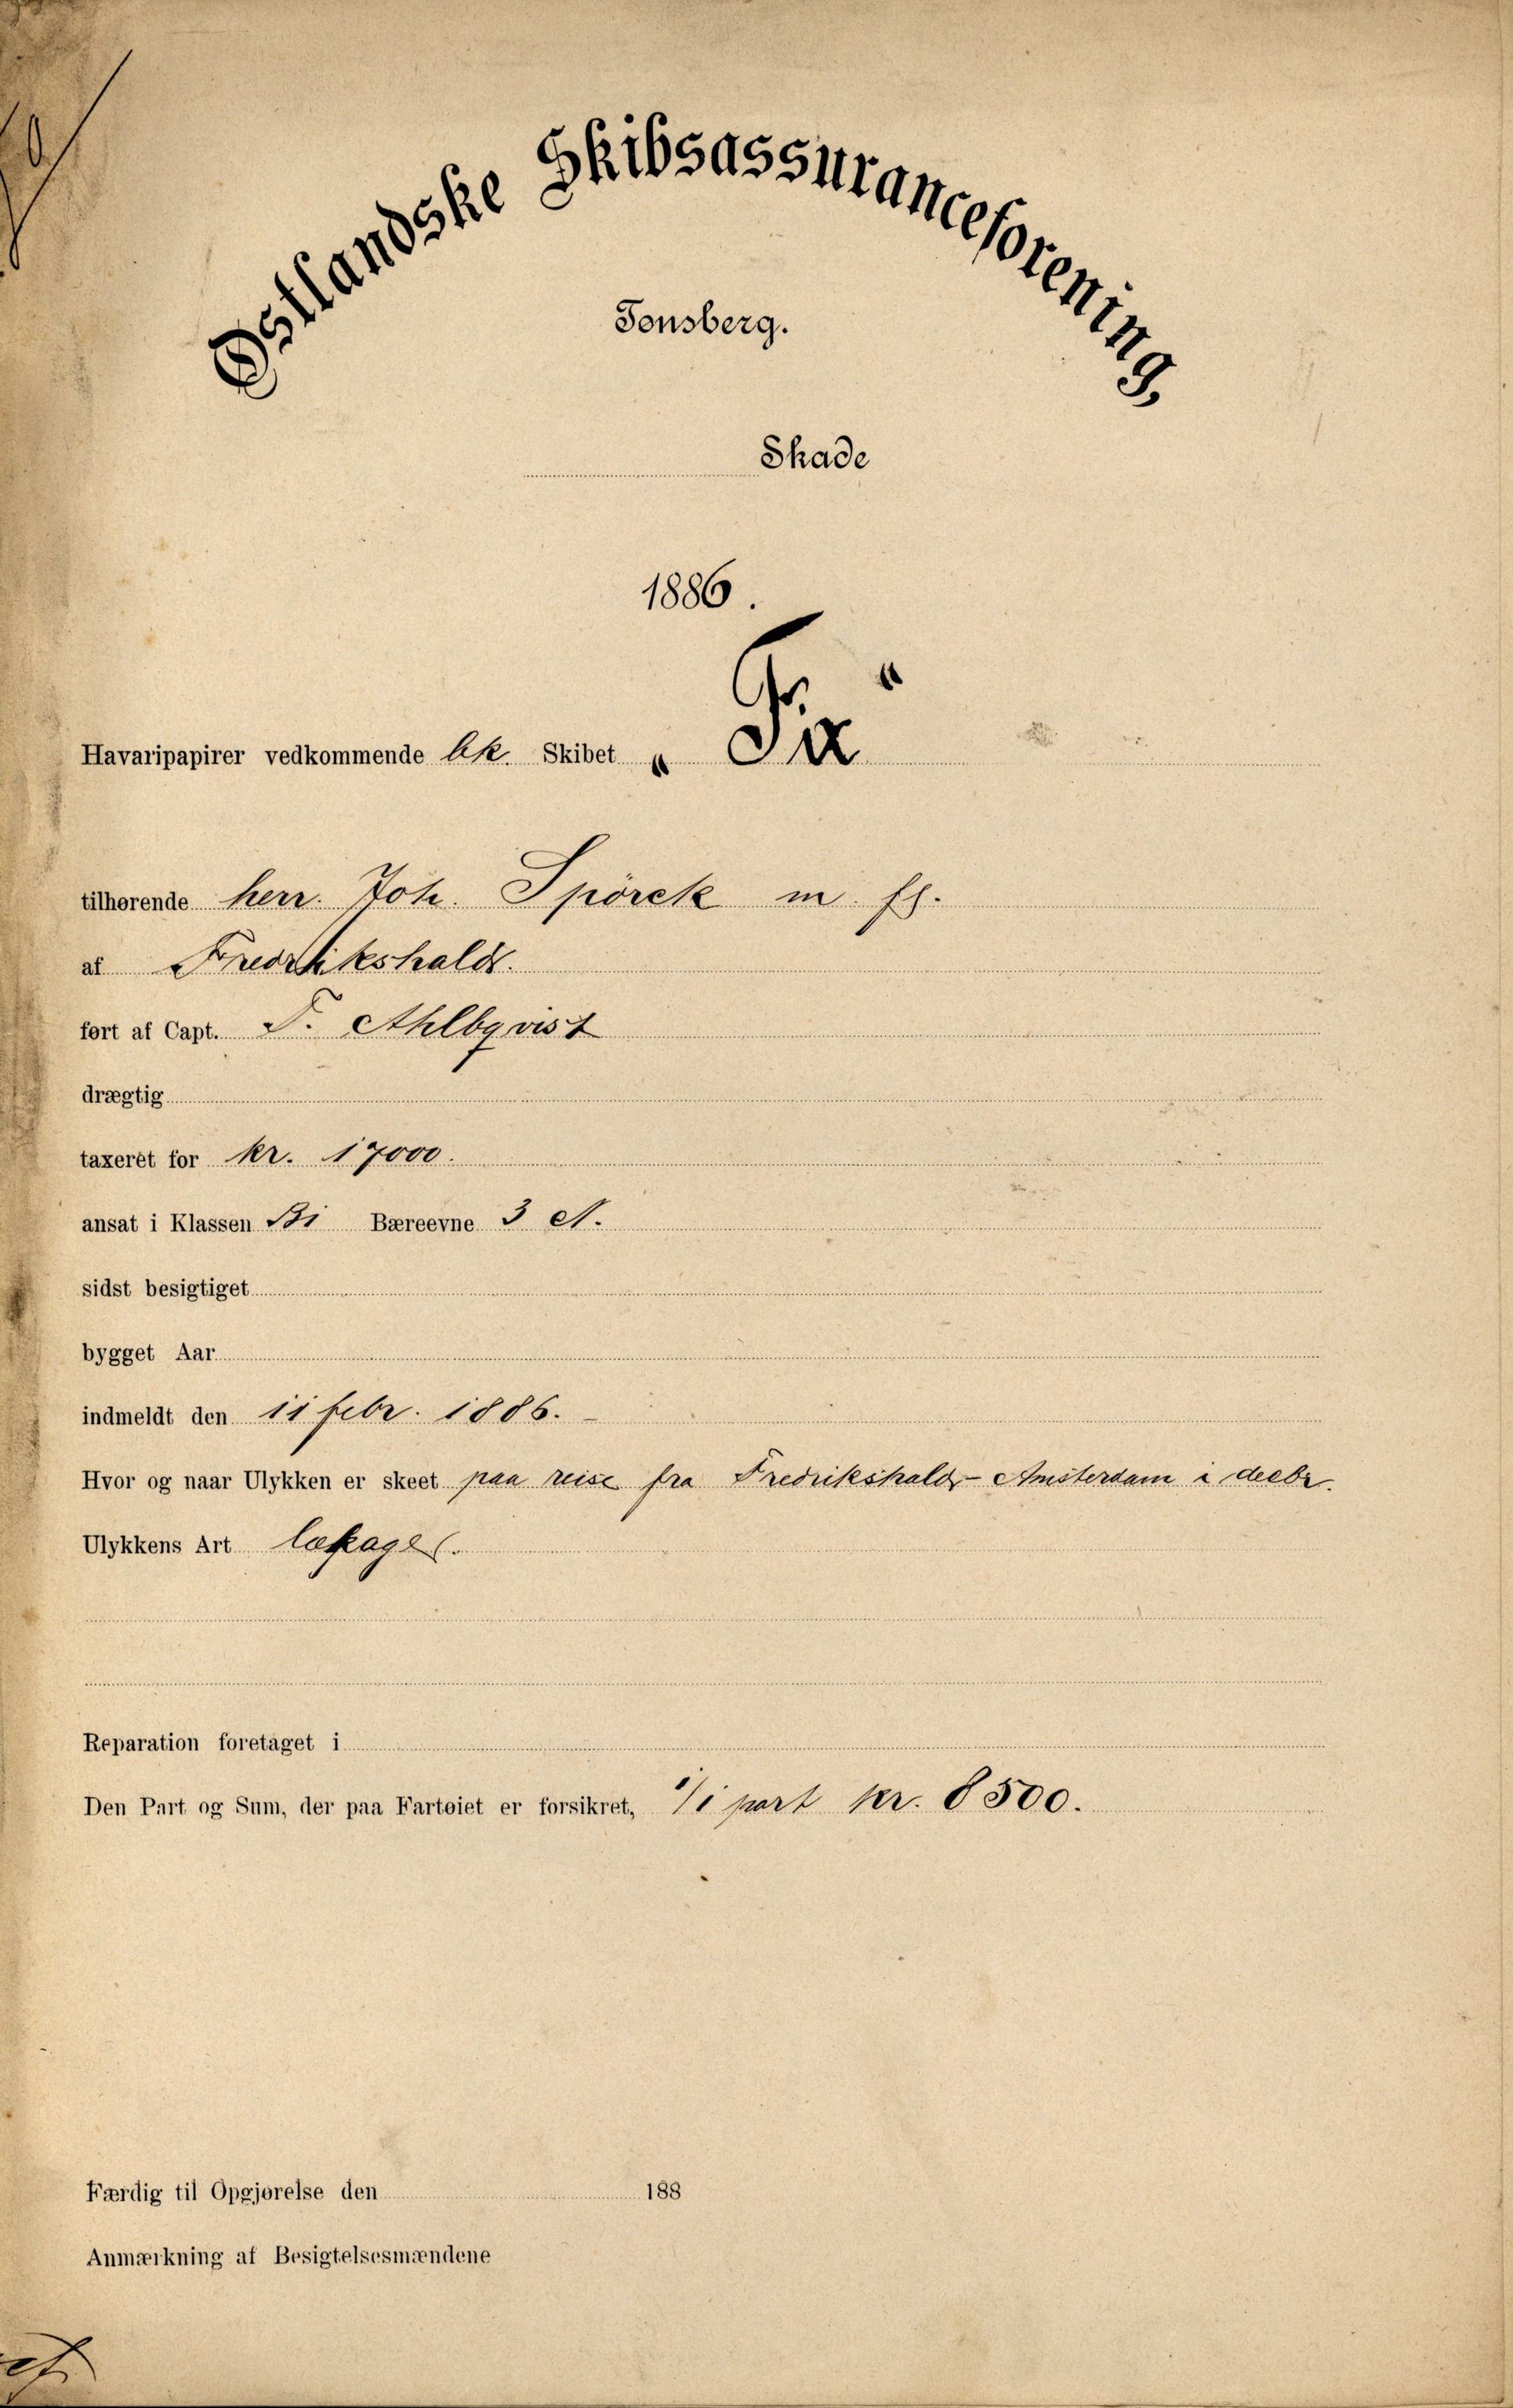 Østlandske Skibsassuranceforening,
Tønsberg.
Skade
1886.
Havaripapirer vedkommende bk. Skibet „Fix“
tilhørende herr. Joh. Spörck m. fl.
af Fredrikshald.
ført af Capt. F. Ahlbqvist
drægtig
taxeret for kr. 17000.
ansat i Klassen B1 Bæreevne 3 A.
sidst besigtiget
bygget Aar
indmeldt den 11 febr. 1886. –
Hvor og naar Ulykken er skeet paa reise fra Fredrikshald – Amsterdam i decbr.
Ulykkens Art lækage.
Reparation foretaget i
Den Part og Sum, der paa Fartøiet er forsikret, 1/1 part kr. 8500.
Færdig til Opgjørelse den 188
Anmærkning af Besigtelsesmændene